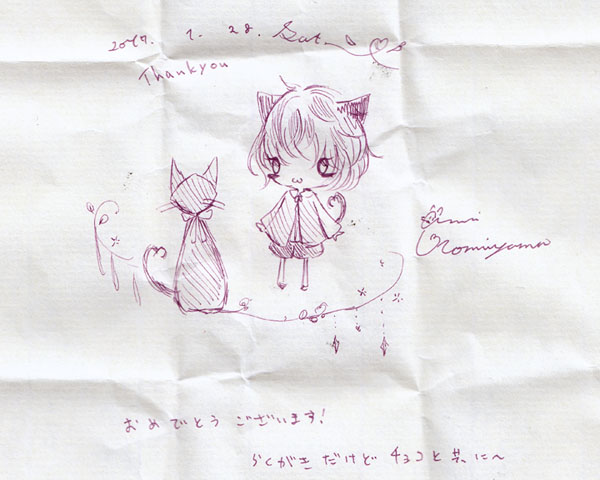 2017. 1. 28. Sat.
Thankyou
おめでとうございます!
らくがきだけど チョコと共に〜